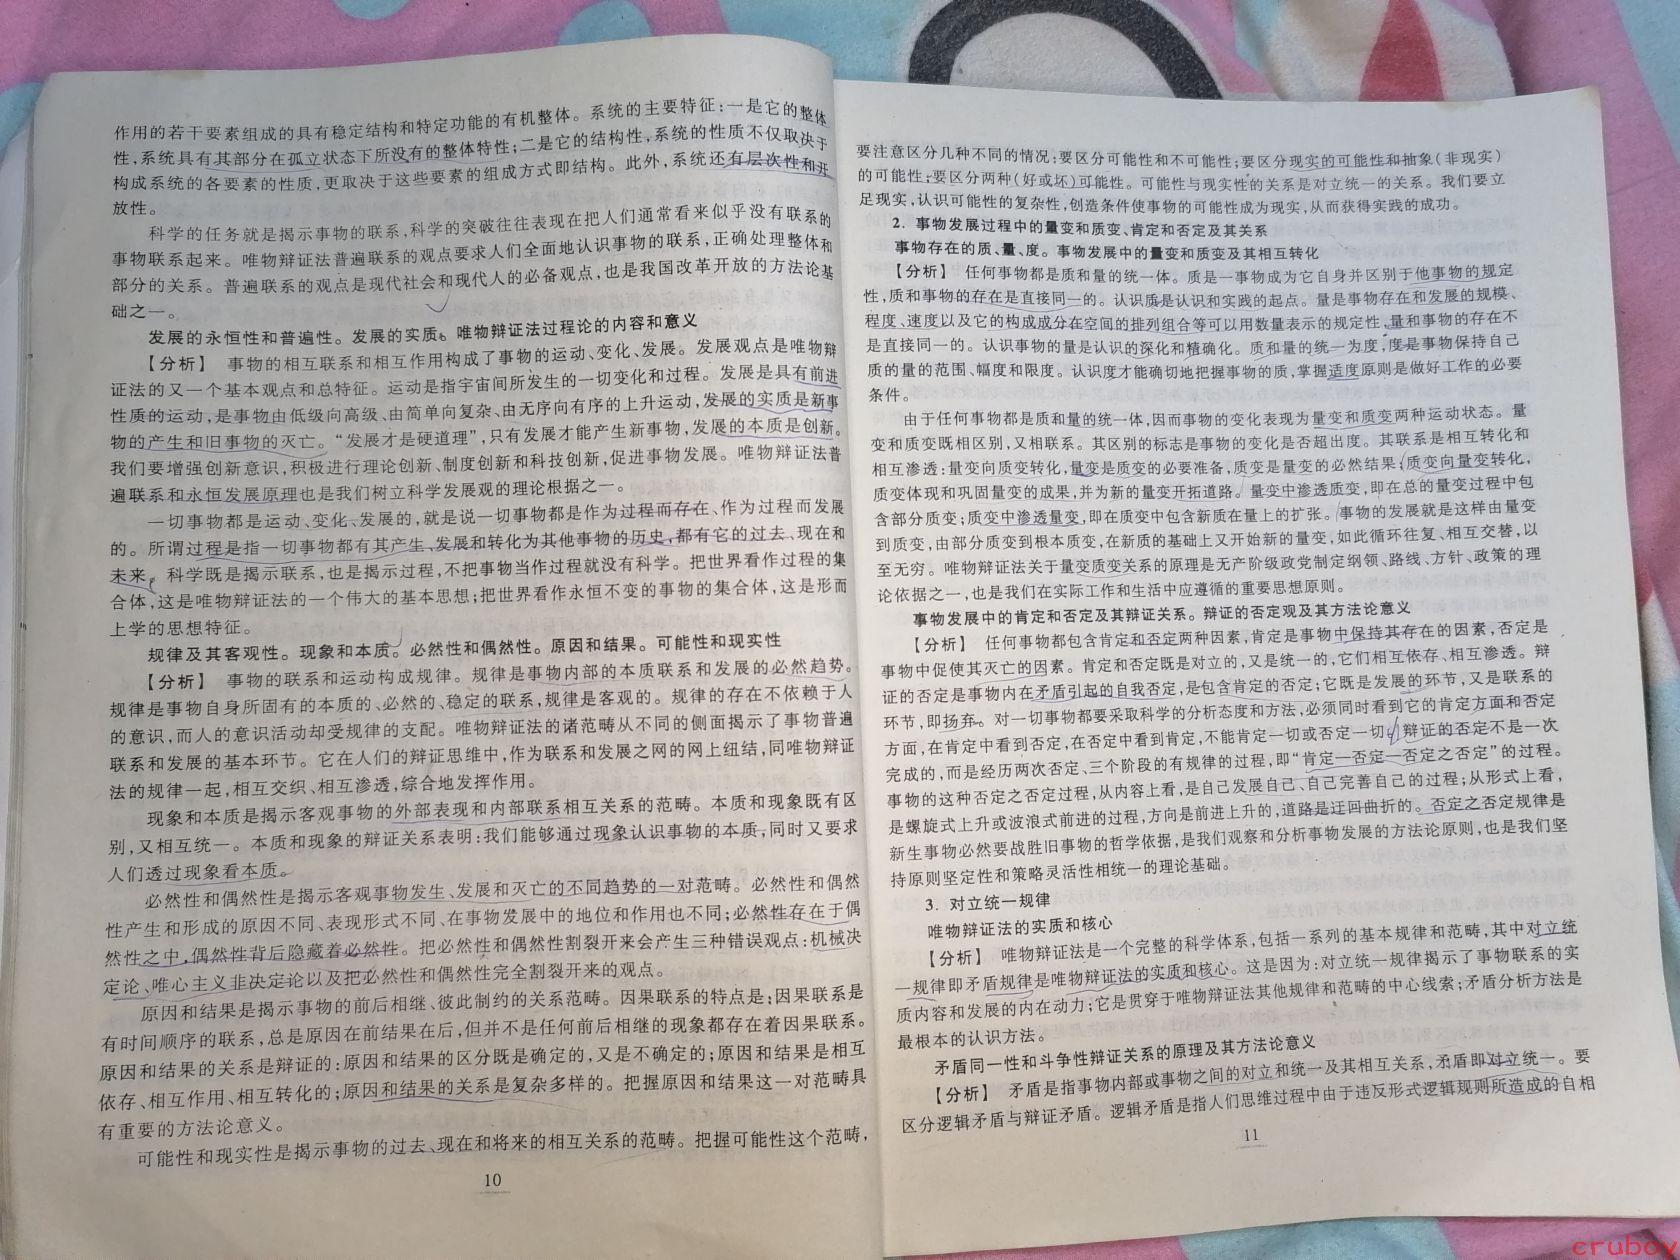 作用的若干要素组成的具有稳定结构和特定功能的有机整体。系统的主要特征:一是它的整体
性,系统具有其部分在孤立状态下所没有的整体特性;二是它的结构性,系统的性质不仅取决于
构成系统的各要素的性质,更取决于这些要素的组成方式即结构。此外,系统还有层次性和开
放性。
科学的任务就是揭示事物的联系,科学的突破往往表现在把人们通常看来似乎没有联系的
事物联系起来。唯物辩证法普遍联系的观点要求人们全面地认识事物的联系,正确处理整体和
部分的关系。普遍联系的观点是现代社会和现代人的必备观点,也是我国改革开放的方法论基
础之一。
发展的永恒性和普遍性。发展的实质。唯物辩证法过程论的内容和意义
【分析】 事物的相互联系和相互作用构成了事物的运动、变化、发展。发展观点是唯物辩
证法的又一个基本观点和总特征。运动是指宇宙间所发生的一切变化和过程。发展是具有前进
性质的运动,是事物由低级向高级、由简单向复杂、由无序向有序的上升运动,发展的实质是新事
物的产生和旧事物的灭亡。“发展才是硬道理”,只有发展才能产生新事物,发展的本质是创新。
我们要增强创新意识,积极进行理论创新、制度创新和科技创新,促进事物发展。唯物辩证法普
遍联系和永恒发展原理也是我们树立科学发展观的理论根据之一。
一切事物都是运动、变化、发展的,就是说一切事物都是作为过程而存在、作为过程而发展
的。所谓过程是指一切事物都有其产生、发展和转化为其他事物的历史,都有它的过去、现在和
未来。科学既是揭示联系,也是揭示过程,不把事物当作过程就没有科学。把世界看作过程的集
合体,这是唯物辩证法的一个伟大的基本思想;把世界看作永恒不变的事物的集合体,这是形而
上学的思想特征。
规律及其客观性。现象和本质。必然性和偶然性。原因和结果。可能性和现实性
【分析】 事物的联系和运动构成规律。规律是事物内部的本质联系和发展的必然趋势。
规律是事物自身所固有的本质的、必然的、稳定的联系,规律是客观的。规律的存在不依赖于人
的意识,而人的意识活动却受规律的支配。唯物辩证法的诸范畴从不同的侧面揭示了事物普遍
联系和发展的基本环节。它在人们的辩证思维中,作为联系和发展之网的网上纽结,同唯物辩证
法的规律一起,相互交织、相互渗透,综合地发挥作用。
现象和本质是揭示客观事物的外部表现和内部联系相互关系的范畴。本质和现象既有区
别,又相互统一。本质和现象的辩证关系表明:我们能够通过现象认识事物的本质,同时又要求
人们透过现象看本质。
必然性和偶然性是揭示客观事物发生、发展和灭亡的不同趋势的一对范畴。必然性和偶然
性产生和形成的原因不同、表现形式不同、在事物发展中的地位和作用也不同;必然性存在于偶
然性之中,偶然性背后隐藏着必然性。把必然性和偶然性割裂开来会产生三种错误观点:机械决
定论、唯心主义非决定论以及把必然性和偶然性完全割裂开来的观点。
原因和结果是揭示事物的前后相继、彼此制约的关系范畴。因果联系的特点是:因果联系是
有时间顺序的联系,总是原因在前结果在后,但并不是任何前后相继的现象都存在着因果联系。
原因和结果的关系是辩证的:原因和结果的区分既是确定的,又是不确定的;原因和结果是相互
依存、相互作用、相互转化的;原因和结果的关系是复杂多样的。把握原因和结果这一对范畴具
有重要的方法论意义。
可能性和现实性是揭示事物的过去、现在和将来的相互关系的范畴。把握可能性这个范畴,
10
要注意区分几种不同的情况:要区分可能性和不可能性;要区分现实的可能性和抽象(非现实)
的可能性;要区分两种(好或坏)可能性。可能性与现实性的关系是对立统一的关系。我们要立
足现实,认识可能性的复杂性,创造条件使事物的可能性成为现实,从而获得实践的成功。
2. 事物发展过程中的量变和质变、肯定和否定及其关系
事物存在的质、量、度。事物发展中的量变和质变及其相互转化
【分析】 任何事物都是质和量的统一体。质是一事物成为它自身并区别于他事物的规定
性,质和事物的存在是直接同一的。认识质是认识和实践的起点。量是事物存在和发展的规模、
程度、速度以及它的构成成分在空间的排列组合等可以用数量表示的规定性,量和事物的存在不
是直接同一的。认识事物的量是认识的深化和精确化。质和量的统一为度,度是事物保持自己
质的量的范围、幅度和限度。认识度才能确切地把握事物的质,掌握适度原则是做好工作的必要
条件。
由于任何事物都是质和量的统一体,因而事物的变化表现为量变和质变两种运动状态。量
变和质变既相区别,又相联系。其区别的标志是事物的变化是否超出度。其联系是相互转化和
相互渗透:量变向质变转化,量变是质变的必要准备,质变是量变的必然结果;质变向量变转化,
质变体现和巩固量变的成果,并为新的量变开拓道路。量变中渗透质变,即在总的量变过程中包
含部分质变;质变中渗透量变,即在质变中包含新质在量上的扩张。事物的发展就是这样由量变
到质变,由部分质变到根本质变,在新质的基础上又开始新的量变,如此循环往复、相互交替,以
至无穷。唯物辩证法关于量变质变关系的原理是无产阶级政党制定纲领、路线、方针、政策的理
论依据之一,也是我们在实际工作和生活中应遵循的重要思想原则。
事物发展中的肯定和否定及其辩证关系。辩证的否定观及其方法论意义
【分析】 任何事物都包含肯定和否定两种因素,肯定是事物中保持其存在的因素,否定是
事物中促使其灭亡的因素。肯定和否定既是对立的,又是统一的,它们相互依存、相互渗透。辩
证的否定是事物内在矛盾引起的自我否定,是包含肯定的否定;它既是发展的环节,又是联系的
环节,即扬弃。对一切事物都要采取科学的分析态度和方法,必须同时看到它的肯定方面和否定
方面,在肯定中看到否定,在否定中看到肯定,不能肯定一切或否定一切。辩证的否定不是一次
完成的,而是经历两次否定、三个阶段的有规律的过程,即“肯定—否定—否定之否定”的过程。
事物的这种否定之否定过程,从内容上看,是自己发展自己、自己完善自己的过程;从形式上看,
是螺旋式上升或波浪式前进的过程,方向是前进上升的,道路是迂回曲折的。否定之否定规律是
新生事物必然要战胜旧事物的哲学依据,是我们观察和分析事物发展的方法论原则,也是我们坚
持原则坚定性和策略灵活性相统一的理论基础。
3. 对立统一规律
唯物辩证法的实质和核心
【分析】 唯物辩证法是一个完整的科学体系,包括一系列的基本规律和范畴,其中对立统
一规律即矛盾规律是唯物辩证法的实质和核心。这是因为:对立统一规律揭示了事物联系的实
质内容和发展的内在动力;它是贯穿于唯物辩证法其他规律和范畴的中心线索;矛盾分析方法是
最根本的认识方法。
矛盾同一性和斗争性辩证关系的原理及其方法论意义
【分析】 矛盾是指事物内部或事物之间的对立和统一及其相互关系,矛盾即对立统一。要
区分逻辑矛盾与辩证矛盾。逻辑矛盾是指人们思维过程中由于违反形式逻辑规则所造成的自相
11
cruboy